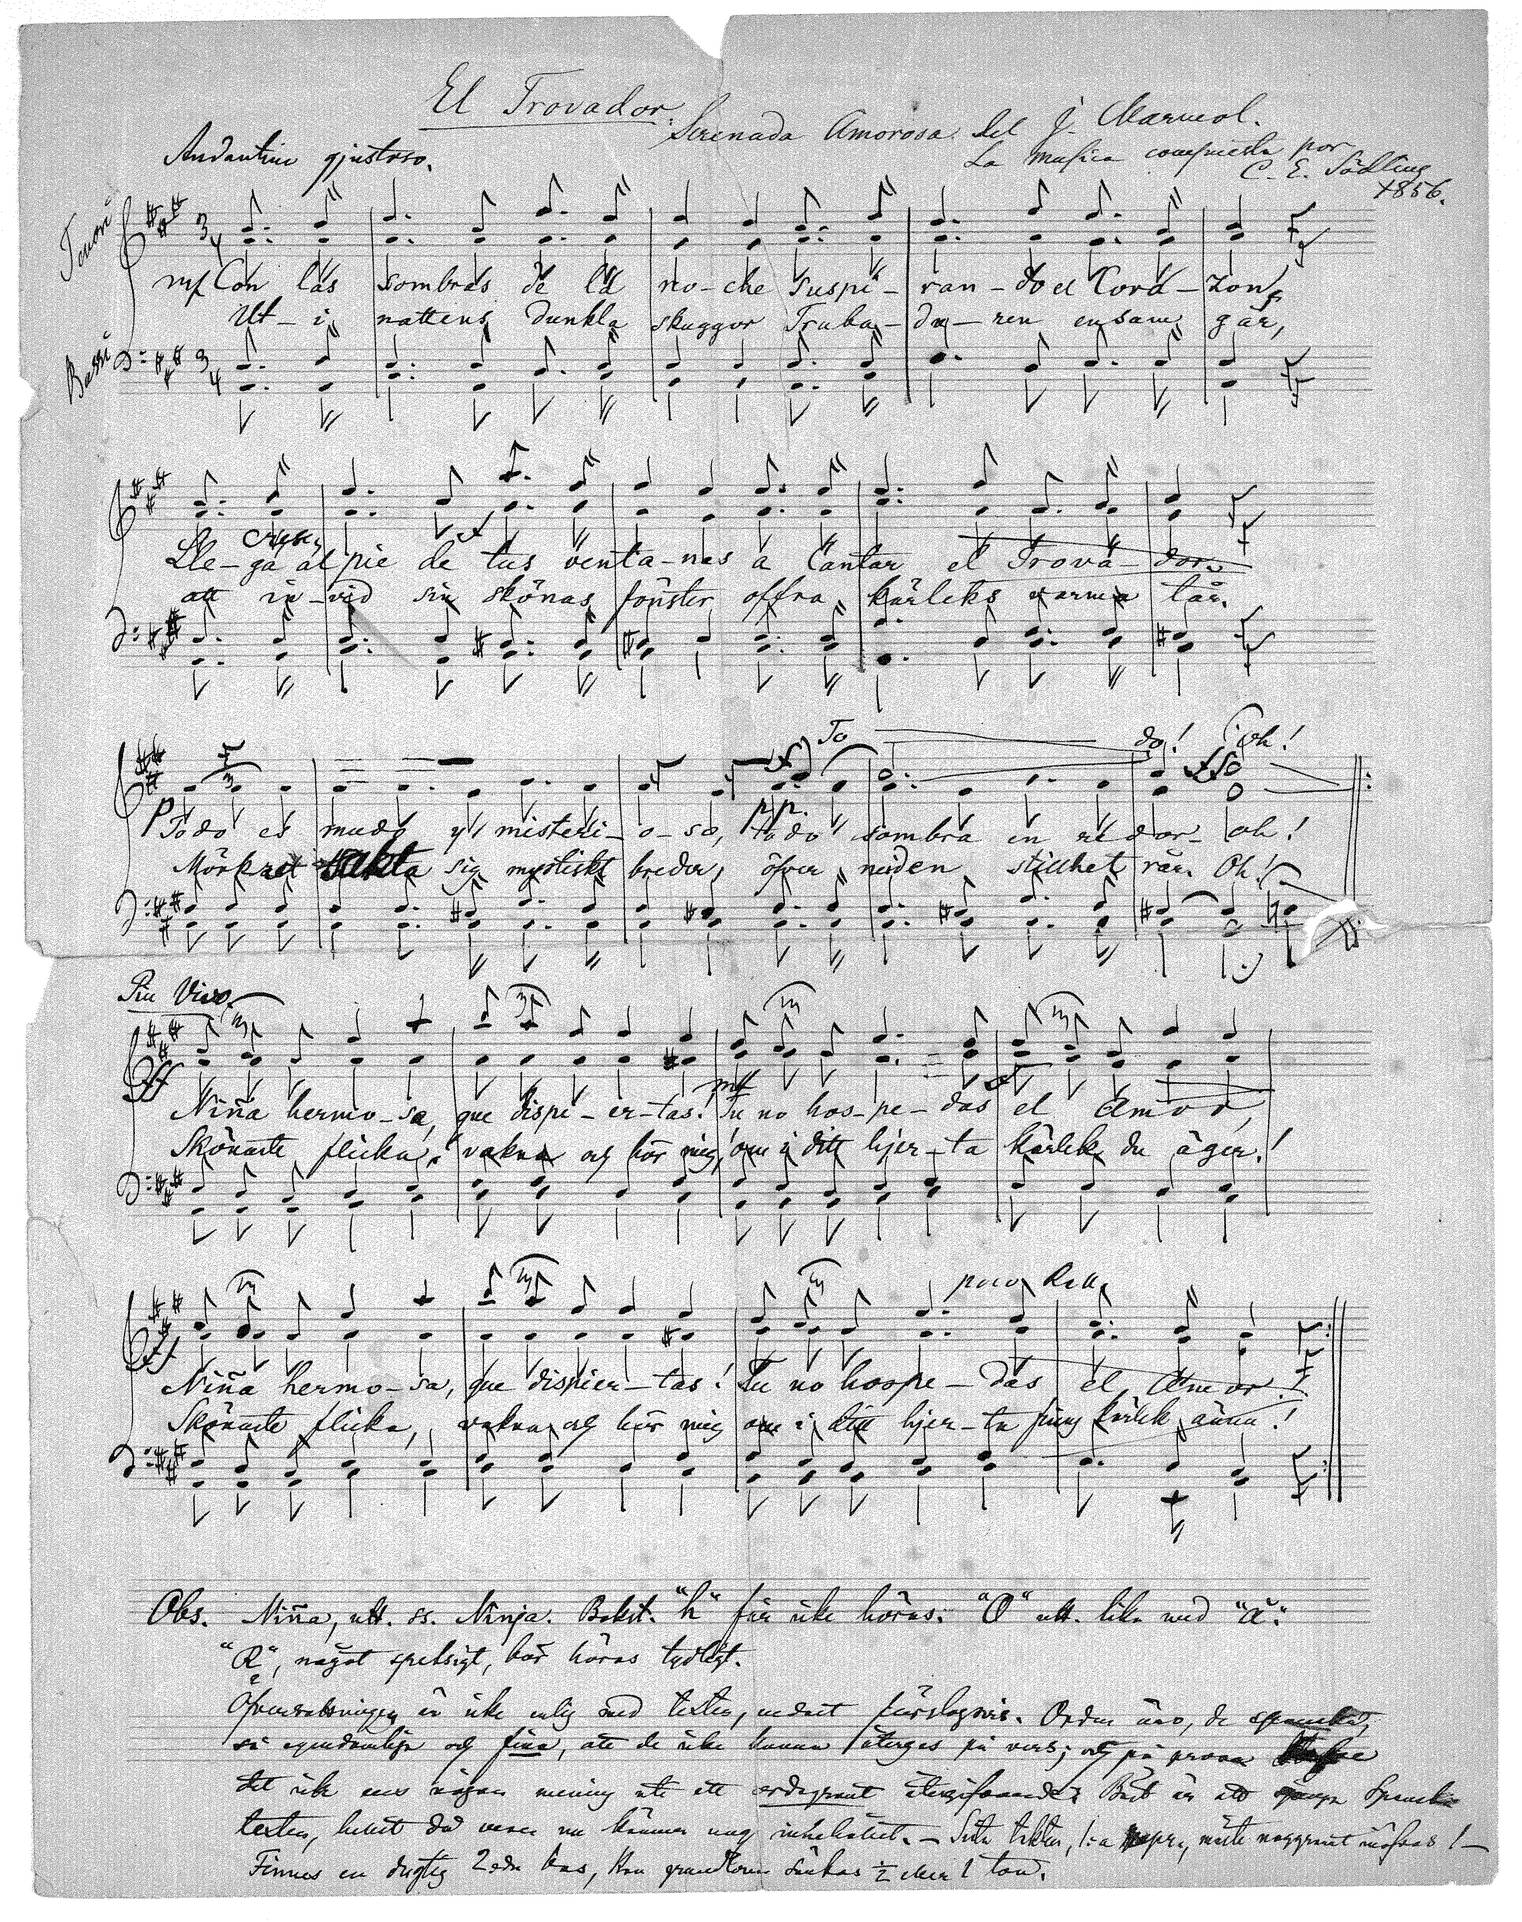 El Trovador.
Serenada Amorosa del J. Marmol.
La musica compuesta por
C. E. Södling
1856.
Andantino
Tenori
mf Con las sombras de la no-che suspi-ran-do el Cora-zon,
Ut-i nattens dunkla skuggor Truba-du-ren ensam går,
Bassi
cresc.
Lle-ga al pie de tus venta-nas a Cantar el Trova-dor.
att in-vid sin skönas fönster offra kärleks varma tår.
To do! oh!
p pp.
Todo es mudo y misteri-o-so, todo sombra en re dor- oh!
Mörkret sakta sig mystiskt breder, öfver nejden stillhet rår. Oh!
Piu Vivo.
ff mf
Niña hermo-sa, que dispi-er-tas! Tu no hos-pe-das el Amor,
Skönaste flicka! vakna och hör mig, om i ditt hjer-ta kärlek du äger!
poco Rall.
ff
Niña hermo-sa, que dispier-tas! Tu no hospe-das el Amor.
Skönaste flicka, vakna och hör mig om i ditt hjer-ta kärlek ännu!
Obs. Niña, utt. ss. Ninja. Bokst. "h" får icke höras. "O" utt. lika med "å".
"R", något spetsigt, bör höras tydligt.
Öfversättningen är icke enlig med texten, endast förslagsvis. Orden äro, de spanska,
så egendomliga och fina, att de icke kunna återges på vers; och på prosa
det icke ens någon mening uti ett ordagrant återgifvande. Bäst är att sjunga Spanska
texten, helst då veren nu känner nog innehållet. - Sista takten, 1:a repr., måste noggrannt iakttas! -
Finnes en dugtig 2:dra bas, kan grundtonen sänkas ½ eller 1 ton.